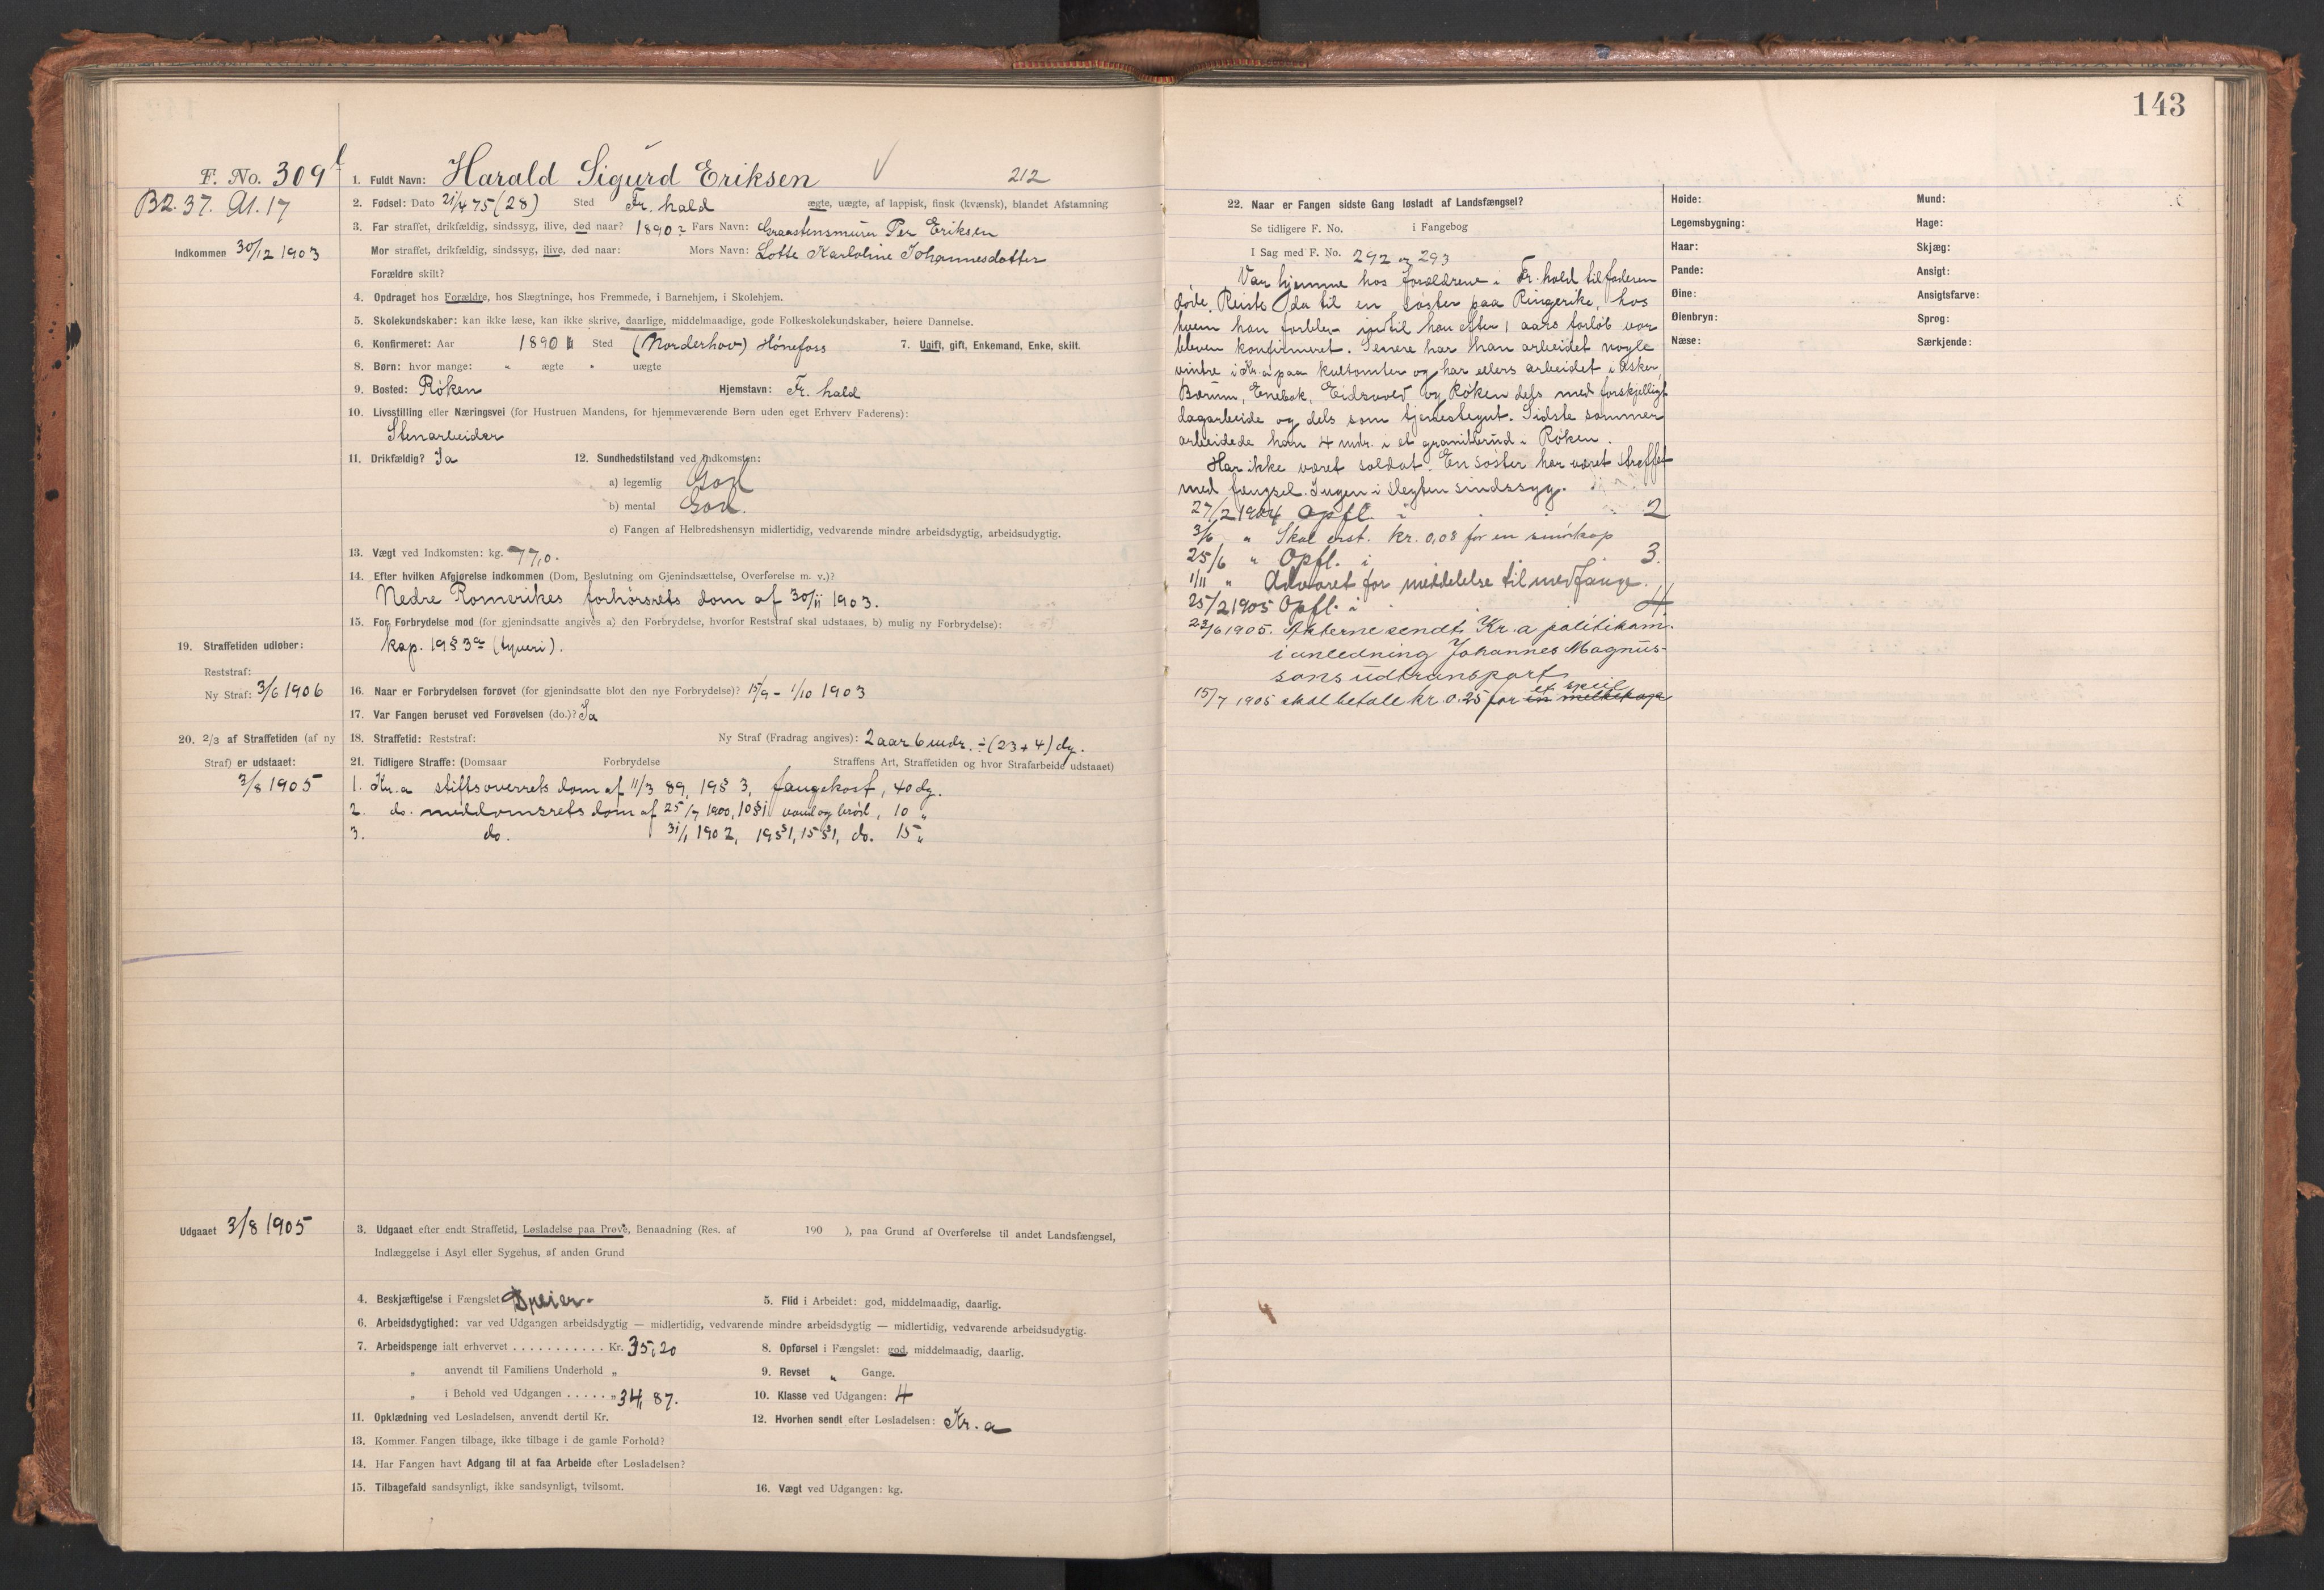 143
F. No. 309
B2. 37. A1. 17
Indkommen 30/12 1903
1. Fuldt Navn: Harald Sigurd Eriksen V 212
2. Fødsel: Dato 21/4 75 (28) Sted Fr. hald ægte, uægte, af lappisk, finsk (kvænsk), blandet Afstamning
3. Far straffet, drikfældig, sindssyg, ilive, død naar? 1890? Fars Navn: Graastensmurer Per Eriksen
Mor straffet, drikfældig, sindssyg, ilive, død naar: Mors Navn: Lotte Karloline Johannesdatter
Forældre skilt?
4. Opdraget hos Forældre, hos Slægtninge, hos Fremmede, i Barnehjem, i Skolehjem.
5. Skolekundskaber: kan ikke læse, kan ikke skrive, daarlige, middelmaadige, gode Folkeskolekundskaber, høiere Dannelse.
6. Konfirmeret: Aar 1890 Sted (Norderhov) Hønefoss 7. Ugift, gift, Enkemand, Enke, skilt.
8. Børn: hvor mange: " ægte " uægte
9. Bosted: Røken Hjemstavn: Fr. hald
10. Livsstilling eller Næringsvei (for Hustruen Mandens, for hjemmeværende Børn uden eget Erhverv Faderens):
Stenarbeider
11. Drikfældig? Ja 12. Sundhedstilstand ved Indkomsten:
a) legemlig God
b) mental God.
c) Fangen af Helbredshensyn midlertidig, vedvarende mindre arbeidsdygtig, arbeidsudygtig.
13. Vægt ved Indkomsten: kg. 77,0.
14. Efter hvilken Afgjørelse indkommen (Dom, Beslutning om Gjenindsættelse, Overførelse m. v.)?
Nedre Romerikes forhørsrets dom af 30/11 1903.
15. For Forbrydelse mod (for gjenindsatte angives a) den Forbrydelse, hvorfor Reststraf skal udstaaes, b) mulig ny Forbrydelse):
kap. 19 § 3a (tyveri).
19. Straffetiden udløber:
Reststraf:
Ny Straf: 3/6 1906
16. Naar er Forbrydelsen forøvet (for gjenindsatte blot den nye Forbrydelse)? 15/9 - 1/10 1903
17. Var Fangen beruset ved Forøvelsen (do.)? Ja
20. 2/3 af Straffetiden (af ny
Straf) er udstaaet:
3/8 1905
18. Straffetid: Reststraf: Ny Straf (Fradrag angives): 2 aar 6 mdr. ÷ (23 + 4) dg.
21. Tidligere Straffe: (Domsaar Forbrydelse Straffens Art, Straffetiden og hvor Strafarbeide udstaaet)
1. Kr.a stiftsoverrets dom af 11/3 89, 19 § 3, fangekost, 40 dg.
2. do. meddomsrets dom af 25/7 1900, 10 § 1 vand og brød, 10 "
3. do. 31/1 1902, 19 § 1, 15 § 1, do. 15 "
Udgaaet 3/8 1905
3. Udgaaet efter endt Straffetid, Løsladelse paa Prøve, Benaadning (Res. af 190 ), paa Grund af Overførelse til andet Landsfængsel,
Indlæggelse i Asyl eller Sygehus, af anden Grund
4. Beskjæftigelse i Fængslet Dreier. 5. Flid i Arbeidet: god, middelmaadig, daarlig.
6. Arbeidsdygtighed: var ved Udgangen arbeidsdygtig — midlertidig, vedvarende mindre arbeidsdygtig — midlertidig, vedvarende arbeidsudygtig.
7. Arbeidspenge ialt erhvervet . . . . . . . . . . . Kr. 35,20 8. Opførsel i Fængslet: god, middelmaadig, daarlig.
" anvendt til Familiens Underhold " 9. Revset " Gange.
" i Behold ved Udgangen . . . . . " 34, 87. 10. Klasse ved Udgangen: 4
11. Opklædning ved Løsladelsen, anvendt dertil Kr. 12. Hvorhen sendt efter Løsladelsen: Kr. a
13. Kommer Fangen tilbage, ikke tilbage i de gamle Forhold?
14. Har Fangen havt Adgang til at faa Arbeide efter Løsladelsen?
15. Tilbagefald sandsynligt, ikke sandsynligt, tvilsomt. 16. Vægt ved Udgangen: kg.
22. Naar er Fangen sidste Gang løsladt af Landsfængsel?
Se tidligere F. No. i Fangebog
I Sag med F. No. 292 og 293
Var hjemme hos forældrene i Fr. hald til faderen
døde. Reiste da til en søster paa Ringerike, hos
hvem han forblev indtil han efter 1 aars forløb var
bleven konfirmeret. Senere har han arbeidet nogle
vintre i Kr.a paa kultomter og har ellers arbeidet i Asker,
Bærum, Enebak, Eidsvold og Røken dels med forskjelligt
dagarbeide og dels som tjenestegut. Sidste sommer
arbeidede han 4 mdr. i et granitbrud i Røken.
Har ikke været soldat. En søster har været straffet
med fængsel. Ingen i slegten sindssyg.
27/2 1904 Opfl. i 2
3/6 " Skal erst. kr. 0,08 for en smørkop
25/6 " Opfl. i 3.
1/11 " Advaret for meddelelse til medfange.
25/2 1905 Opfl. i 4.
22/6 1905. Akterne sendt Kr. a politikam.
i anledning Johannes Magnus-
sons udtransport
15/7 1905 skal betale kr. 0.25 for en melkekop et speil
Høide: Mund:
Legemsbygning: Hage:
Haar: Skjæg:
Pande: Ansigt:
Øine: Ansigtsfarve:
Øienbryn: Sprog:
Næse: Særkjende:
4